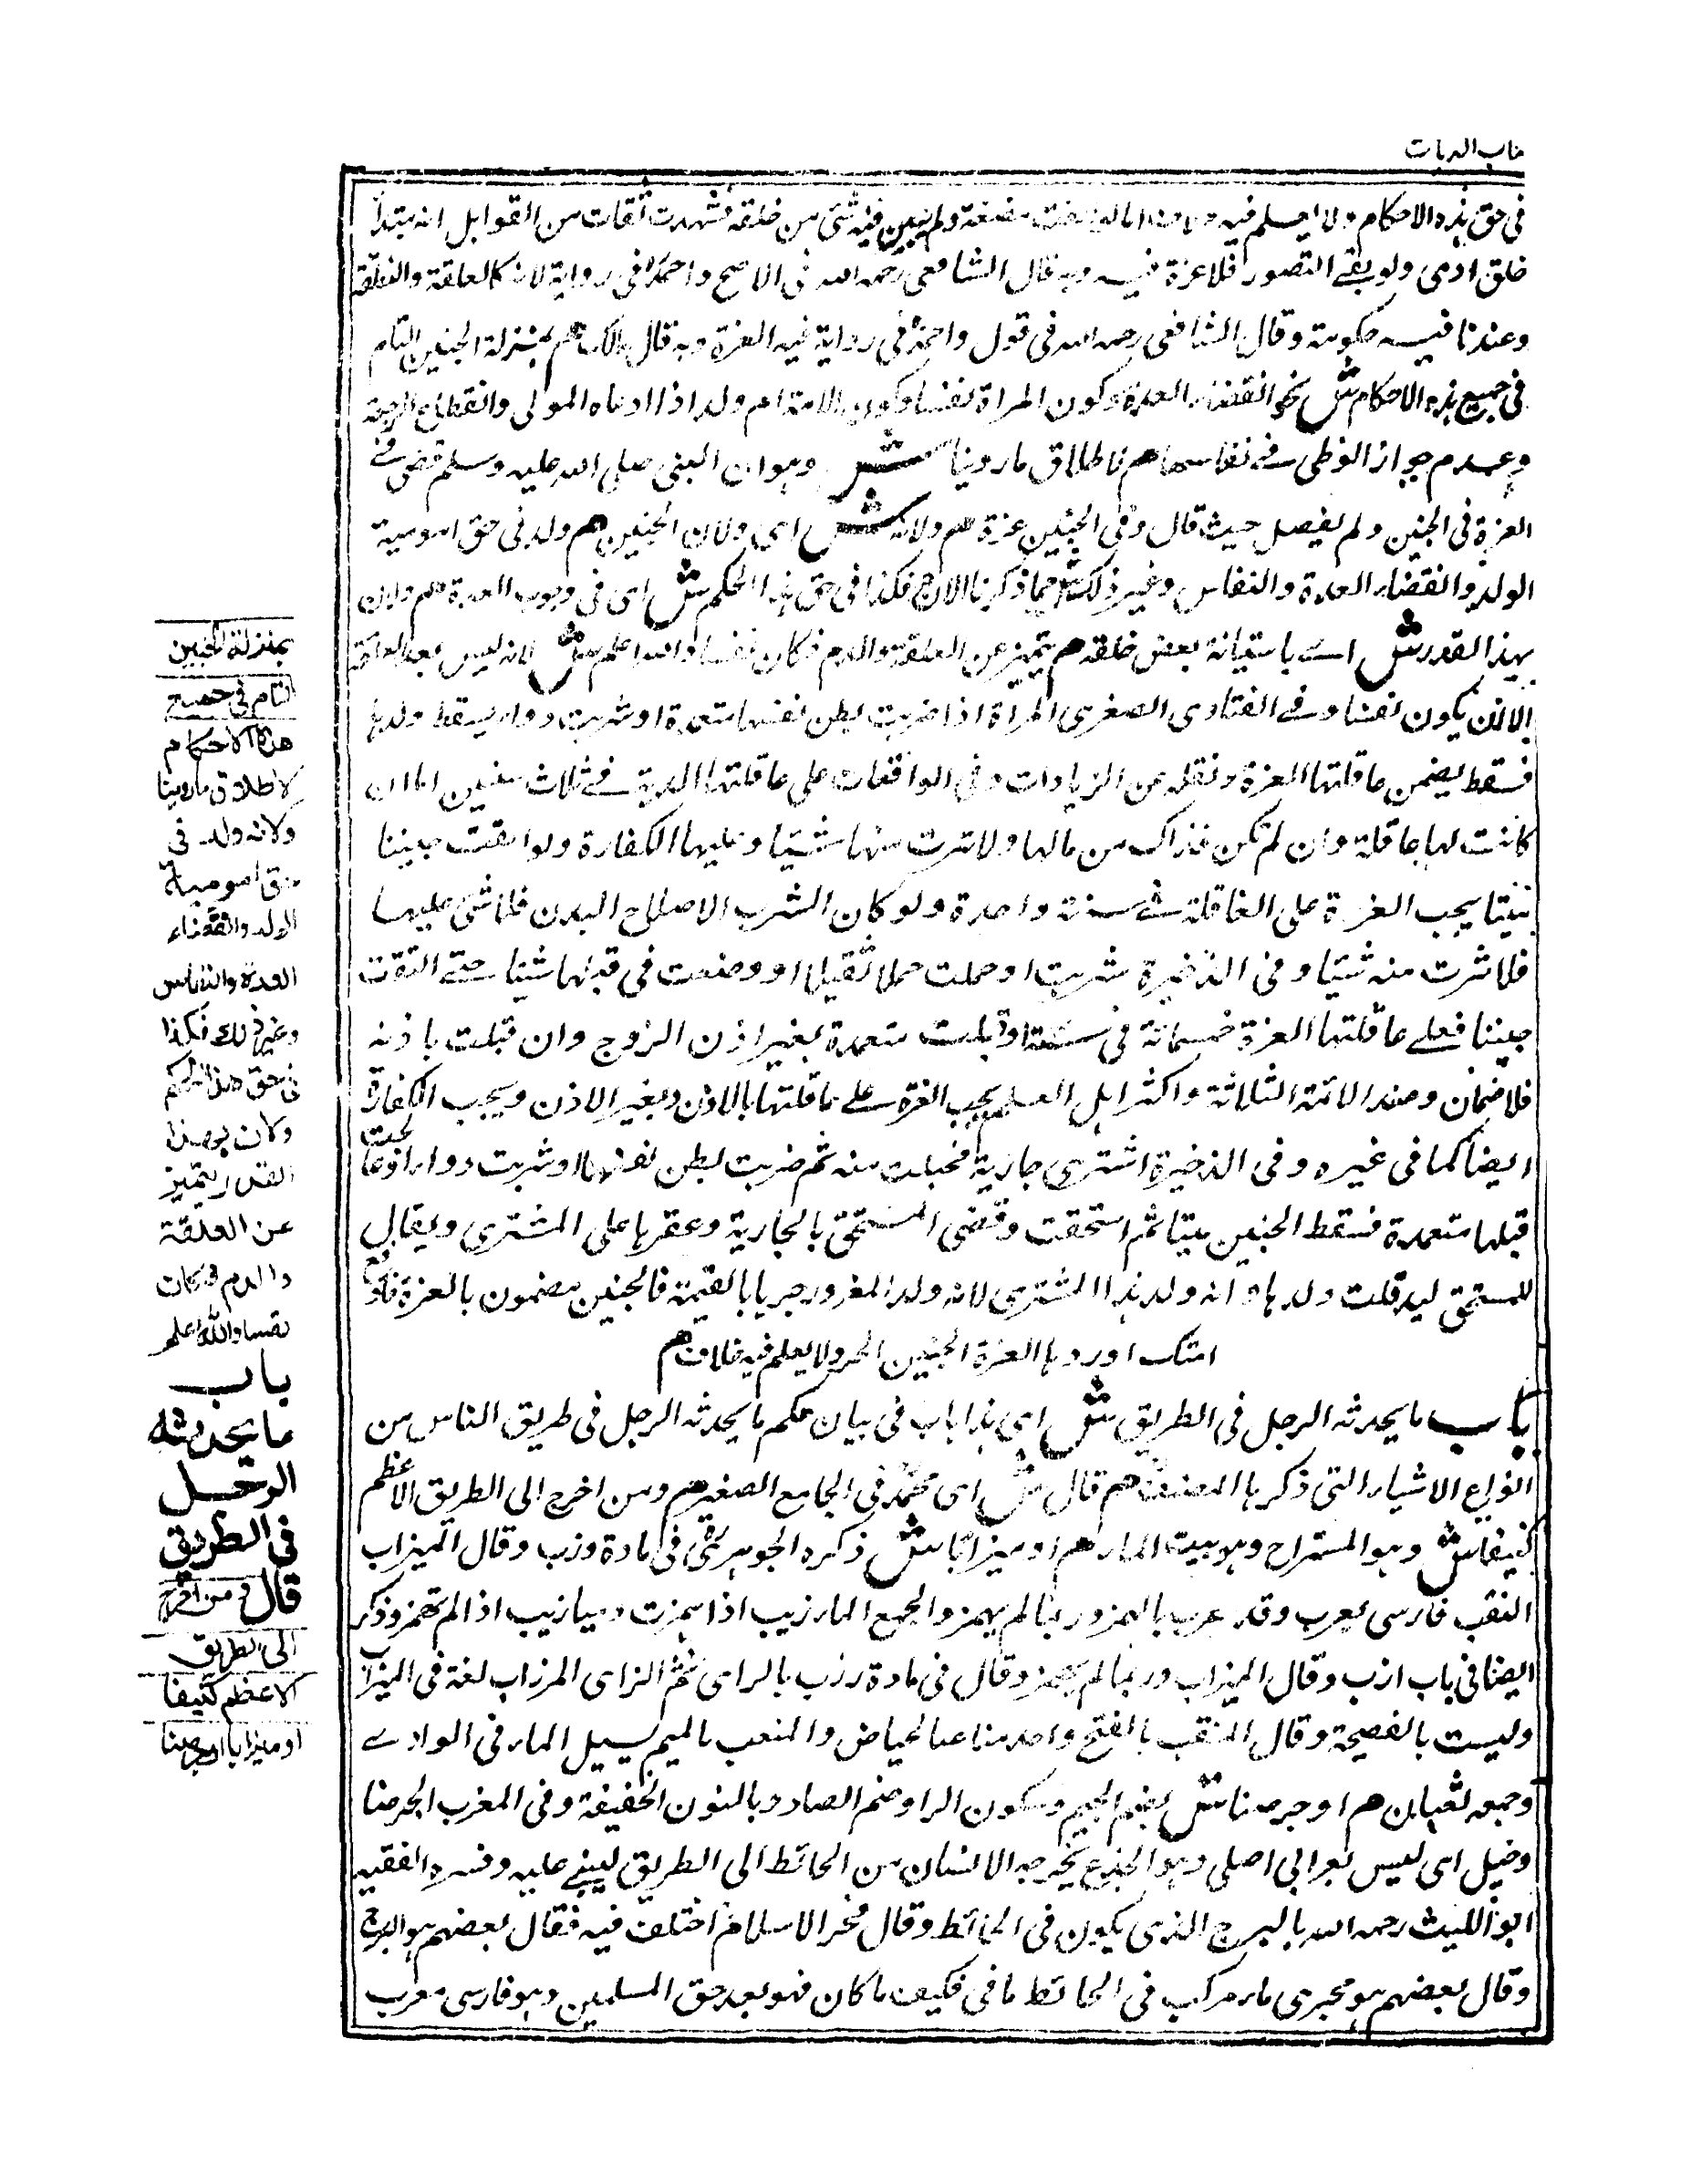 في حق هذه الاحكام ولا يعلم فيه مضغة ولم يتبين فيه شئ من خلقه فشهدت ثقات من القوابل انه مبتدأ
خلق ادمى ولو بقى لتصور فلا غرة فيه وبه قال الشافعى رحمه الله فى الاصح واحمدؒ فى رواية لانه كالعلقة والنطفة
وعندنا فيه حكومة وقال الشافعى رحمه الله فى قول واحمدؒ فى رواية فيه الغرة وبه قال مالكؒ هم بمنزلة الجنين التام
فى جميع هذه الاحكام ش نحو انقضاء العدة وكون المراة نفساء وكون الامة ام ولد اذا ادعاه المولى وانقطاع الرجعة
وعدم جواز الوطى فى نفاسها هم لاطلاق ما روينا ش وهو ان النبى صلى الله عليه وسلم قضى فى
الغرة فى الجنين ولم يفصل حيث قال وفى الجنين غرة هم ولانه ش اى ولان الجنين هم ولد فى حق امومية
الولد وانقضاء العدة والنفاس وغير ذلك ش مما ذكرنا الان هم فكذا فى حق هذا الحكم ش اى فى وجوب الغرة هم ولان
بهذا القدر ش اى باستبانة بعض خلقه هم يتميز عن العلقة والدم فكان نفسا والله اعلم ش لانه ليس بعد العلقة
الا ان يكون نفسا وفى الفتاوى الصغرى المراة اذا ضربت بطن نفسها متعمدة او شربت دواء ليسقط ولدها
فسقط يضمن عاقلتها الغرة ونقله عن الزيادات وفى الواقعات على عاقلتها الدية فى ثلاث سنين اما ان
كانت لها عاقلة وان لم تكن فذاك من مالها ولا ترث منها شيئا وعليها الكفارة ولو القت جنينا
ميتا يجب الغرة على العاقلة فى سنة واحدة ولو كان الشرب لاصلاح البدن فلا شئ عليها
فلا ترث منه شيئا وفى الذخيرة شربت او حملت حملا ثقيلا او وضعت فى قبلها شيئا حتى القت
جنينا فعلى عاقلتها الغرة خمسمائة فى سنة متعمدة بغير اذن الزوج وان قبلت باذنه
فلا ضمان وعند الائمة الثلاثة واكثر اهل العلم يجب الغرة على عاقلتها بالاذن وبغير الاذن ويجب الكفارة
ايضا كما فى غيره وفى الذخيرة اشترى جارية فحبلت منه ثم ضربت بطن نفسها او شربت دواء او عالجت
قبلها متعمدة فسقط الجنين ميتا ثم استحقت وقضى المستحق بالجارية وعقرها على المشترى ويقال
للمستحق ولدها وانه ولد هذا المشترى لانه ولد المغرور حر بالقيمة فالجنين مضمون بالغرة فادفع
امتك او ردها الغرة الجنين الحر ولا يعلم فيه خلاف هم
باب ما يحدثه الرجل فى الطريق ش اى هذا باب فى بيان حكم ما يحدثه الرجل فى طريق الناس من
انواع الاشياء التى ذكرها المصنفؒ هم قال ش اى محمدؒ فى الجامع الصغير هم ومن اخرج الى الطريق الاعظم
كنيفا ش وهو المستراح وهو بيت الماء هم او ميزابا ش ذكره الجوهرىؒ فى مادة وزب وقال الميزاب
المثقب فارسى معرب وقد عرب بالهمز وربما لم يهمز والجمع المازيب اذا همزت وميازيب اذا لم تهمز وذكر
ايضا فى باب ازب وقال الميزاب وربما لم يهمز وقال فى مادة رزب بالراى ثم الزاى المرزاب لغة فى الميزاب
وليست بالفصيحة وقال المثقب بالفتح واحد مثاعب الحياض والمثعب بالميم مسيل الماء فى الوادى
وجمعه ثعبان هم او جرصنا ش بضم الجيم وسكون الراء وضم الصاد وبالنون الخفيفة وفى المغرب الجرصنا
دخيل اى ليس بعرابى اصلى وهو الجذع يخرجه الانسان من الحائط الى الطريق ليبنى عليه وفسره الفقيه
ابو الليث رحمه الله بالبرج الذى يكون فى الحائط وقال فخر الاسلامؒ اختلف فيه فقال بعضهم هو البرج
وقال بعضهم هو مجرى ماء مركب فى الحائط فكيف ما كان فهو بعد حق المسلمين وهو فارسى معرب
بمنزلة الجنين
التام فى جميع
هذه الاحكام
لاطلاق ما روينا
ولانه ولد فى
حق امومية
الولد وانقضاء
العدة والنفاس
وغير ذلك فكذا
فى حق هذا الحكم
ولان بهذا
القدر يتميز
عن العلقة
والدم فكان
نفسا والله اعلم
باب
ما يحدثه
الرجل
فى الطريق
قال ومن اخرج
الى الطريق
الاعظم كنيفا
او ميزابا او جرصنا